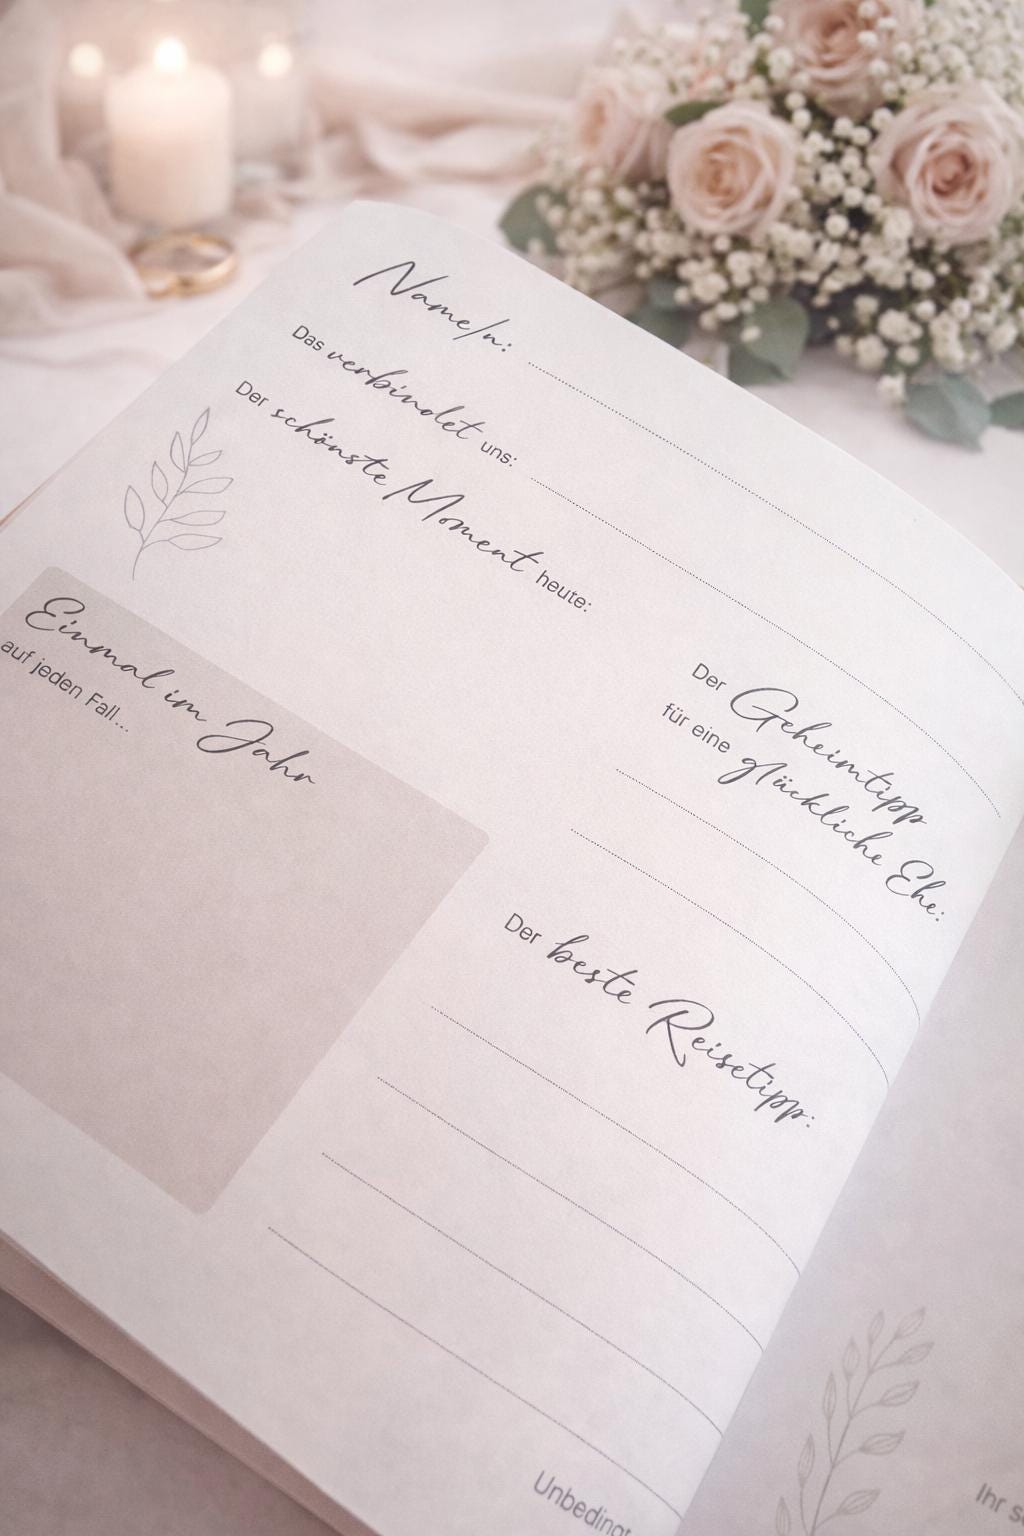 Name/n:
Das verbindet uns:
Der schönste Moment heute:
Einmal im Jahr
auf jeden Fall...
Der Geheimtipp
für eine glückliche Ehe:
Der beste Reisetipp:
Unbedingt
Ihr